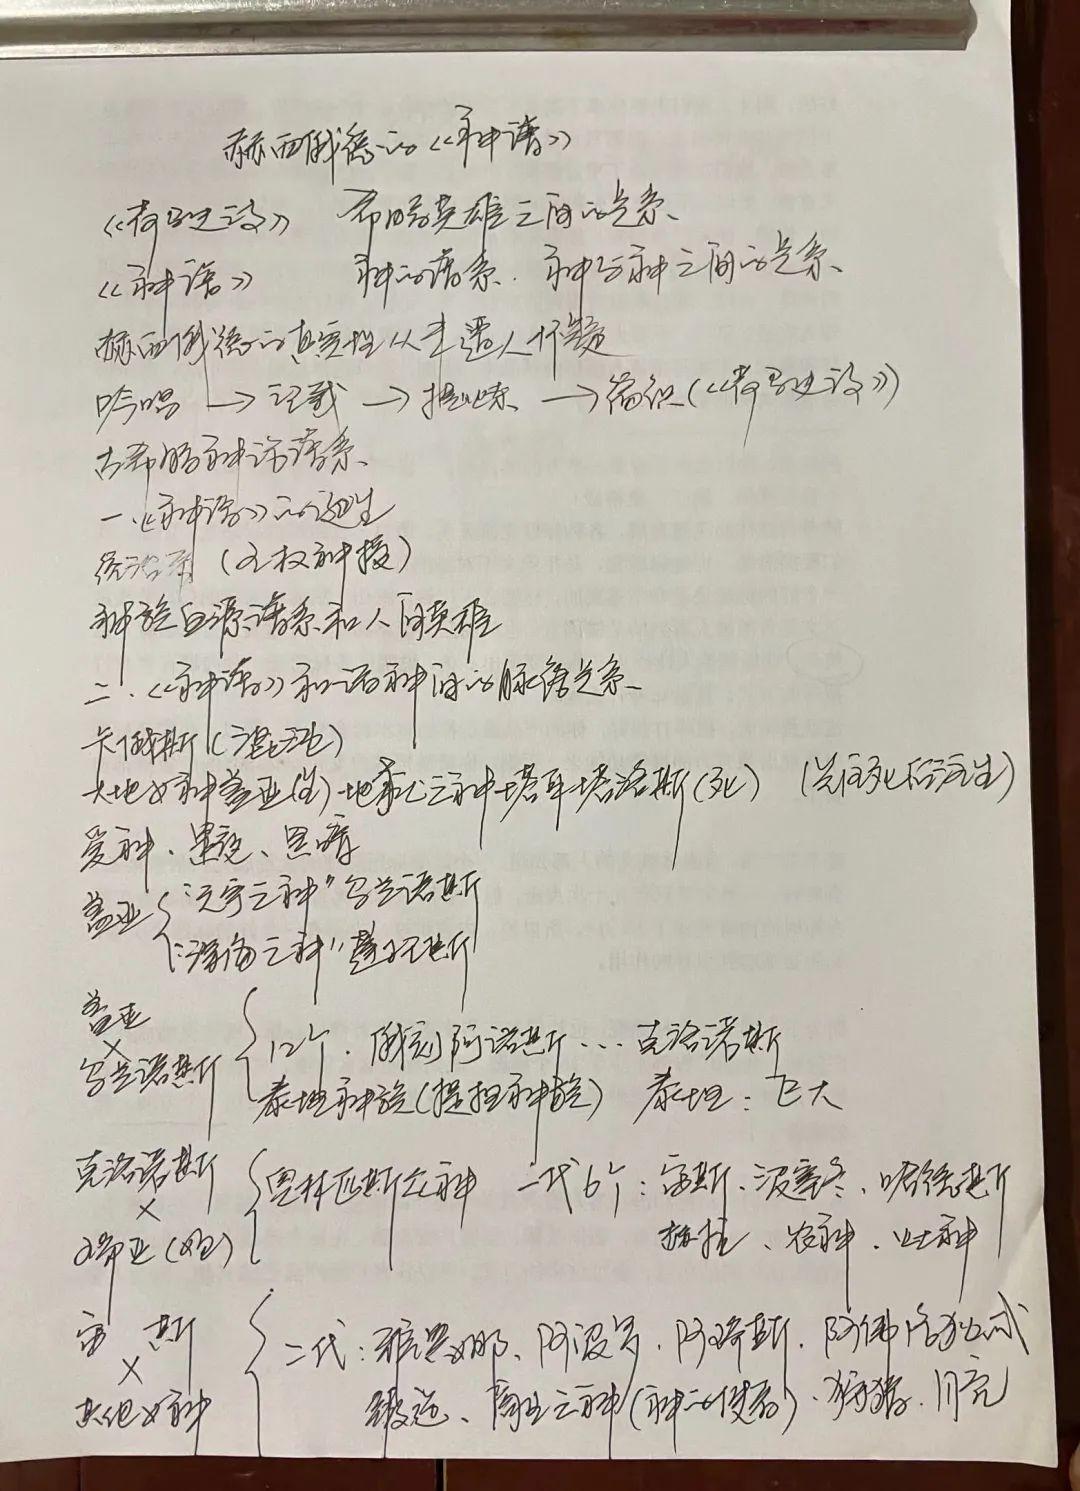 赫西俄德的《神谱》
《荷马史诗》 希腊英雄之间的关系、
《神谱》 神的谱系、神与神之间的关系、
赫西俄德的真实性从未遭人怀疑
吟唱 → 记载 → 提炼 → 简织(《荷马史诗》)
古希腊神话谱系、
一、《神谱》的诞生
统治系 (君权神授)
神族血源谱系和人间英雄
二、《神谱》和诸神间的脉络关系、
卡俄斯(混沌)
大地女神盖亚(生)-地狱之神塔耳塔洛斯(死) (关向死而生)
爱神、黑夜、黑暗
盖亚 { "天宇之神"乌兰诺斯
"深海之神"蓬托斯
盖亚
×
乌兰诺斯 { 12个、俄刻阿诺斯…克洛诺斯
泰坦神族(提坦神族) 泰坦:巨大
克洛诺斯
×
瑞亚(姐) { 奥林匹斯众神 一代6个:宙斯、波塞冬、哈德斯
赫拉、农神、灶神
宙斯
×
其他女神 { 二代:雅典娜、阿波罗、阿瑞斯、阿佛洛狄忒
锻造、商业之神(神的使者)、狩猎、月亮